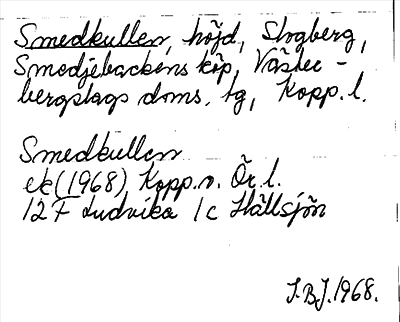 Smedkullen, höjd, Slogberg,
Smedjebackens köp, Väster-
bergslags doms. tg, Kopp. l.
Smedkullen
ek (1968) Kopp. o. Ör. l.
12 F Ludvika 1c Hällsjön
J.B.J. 1968.